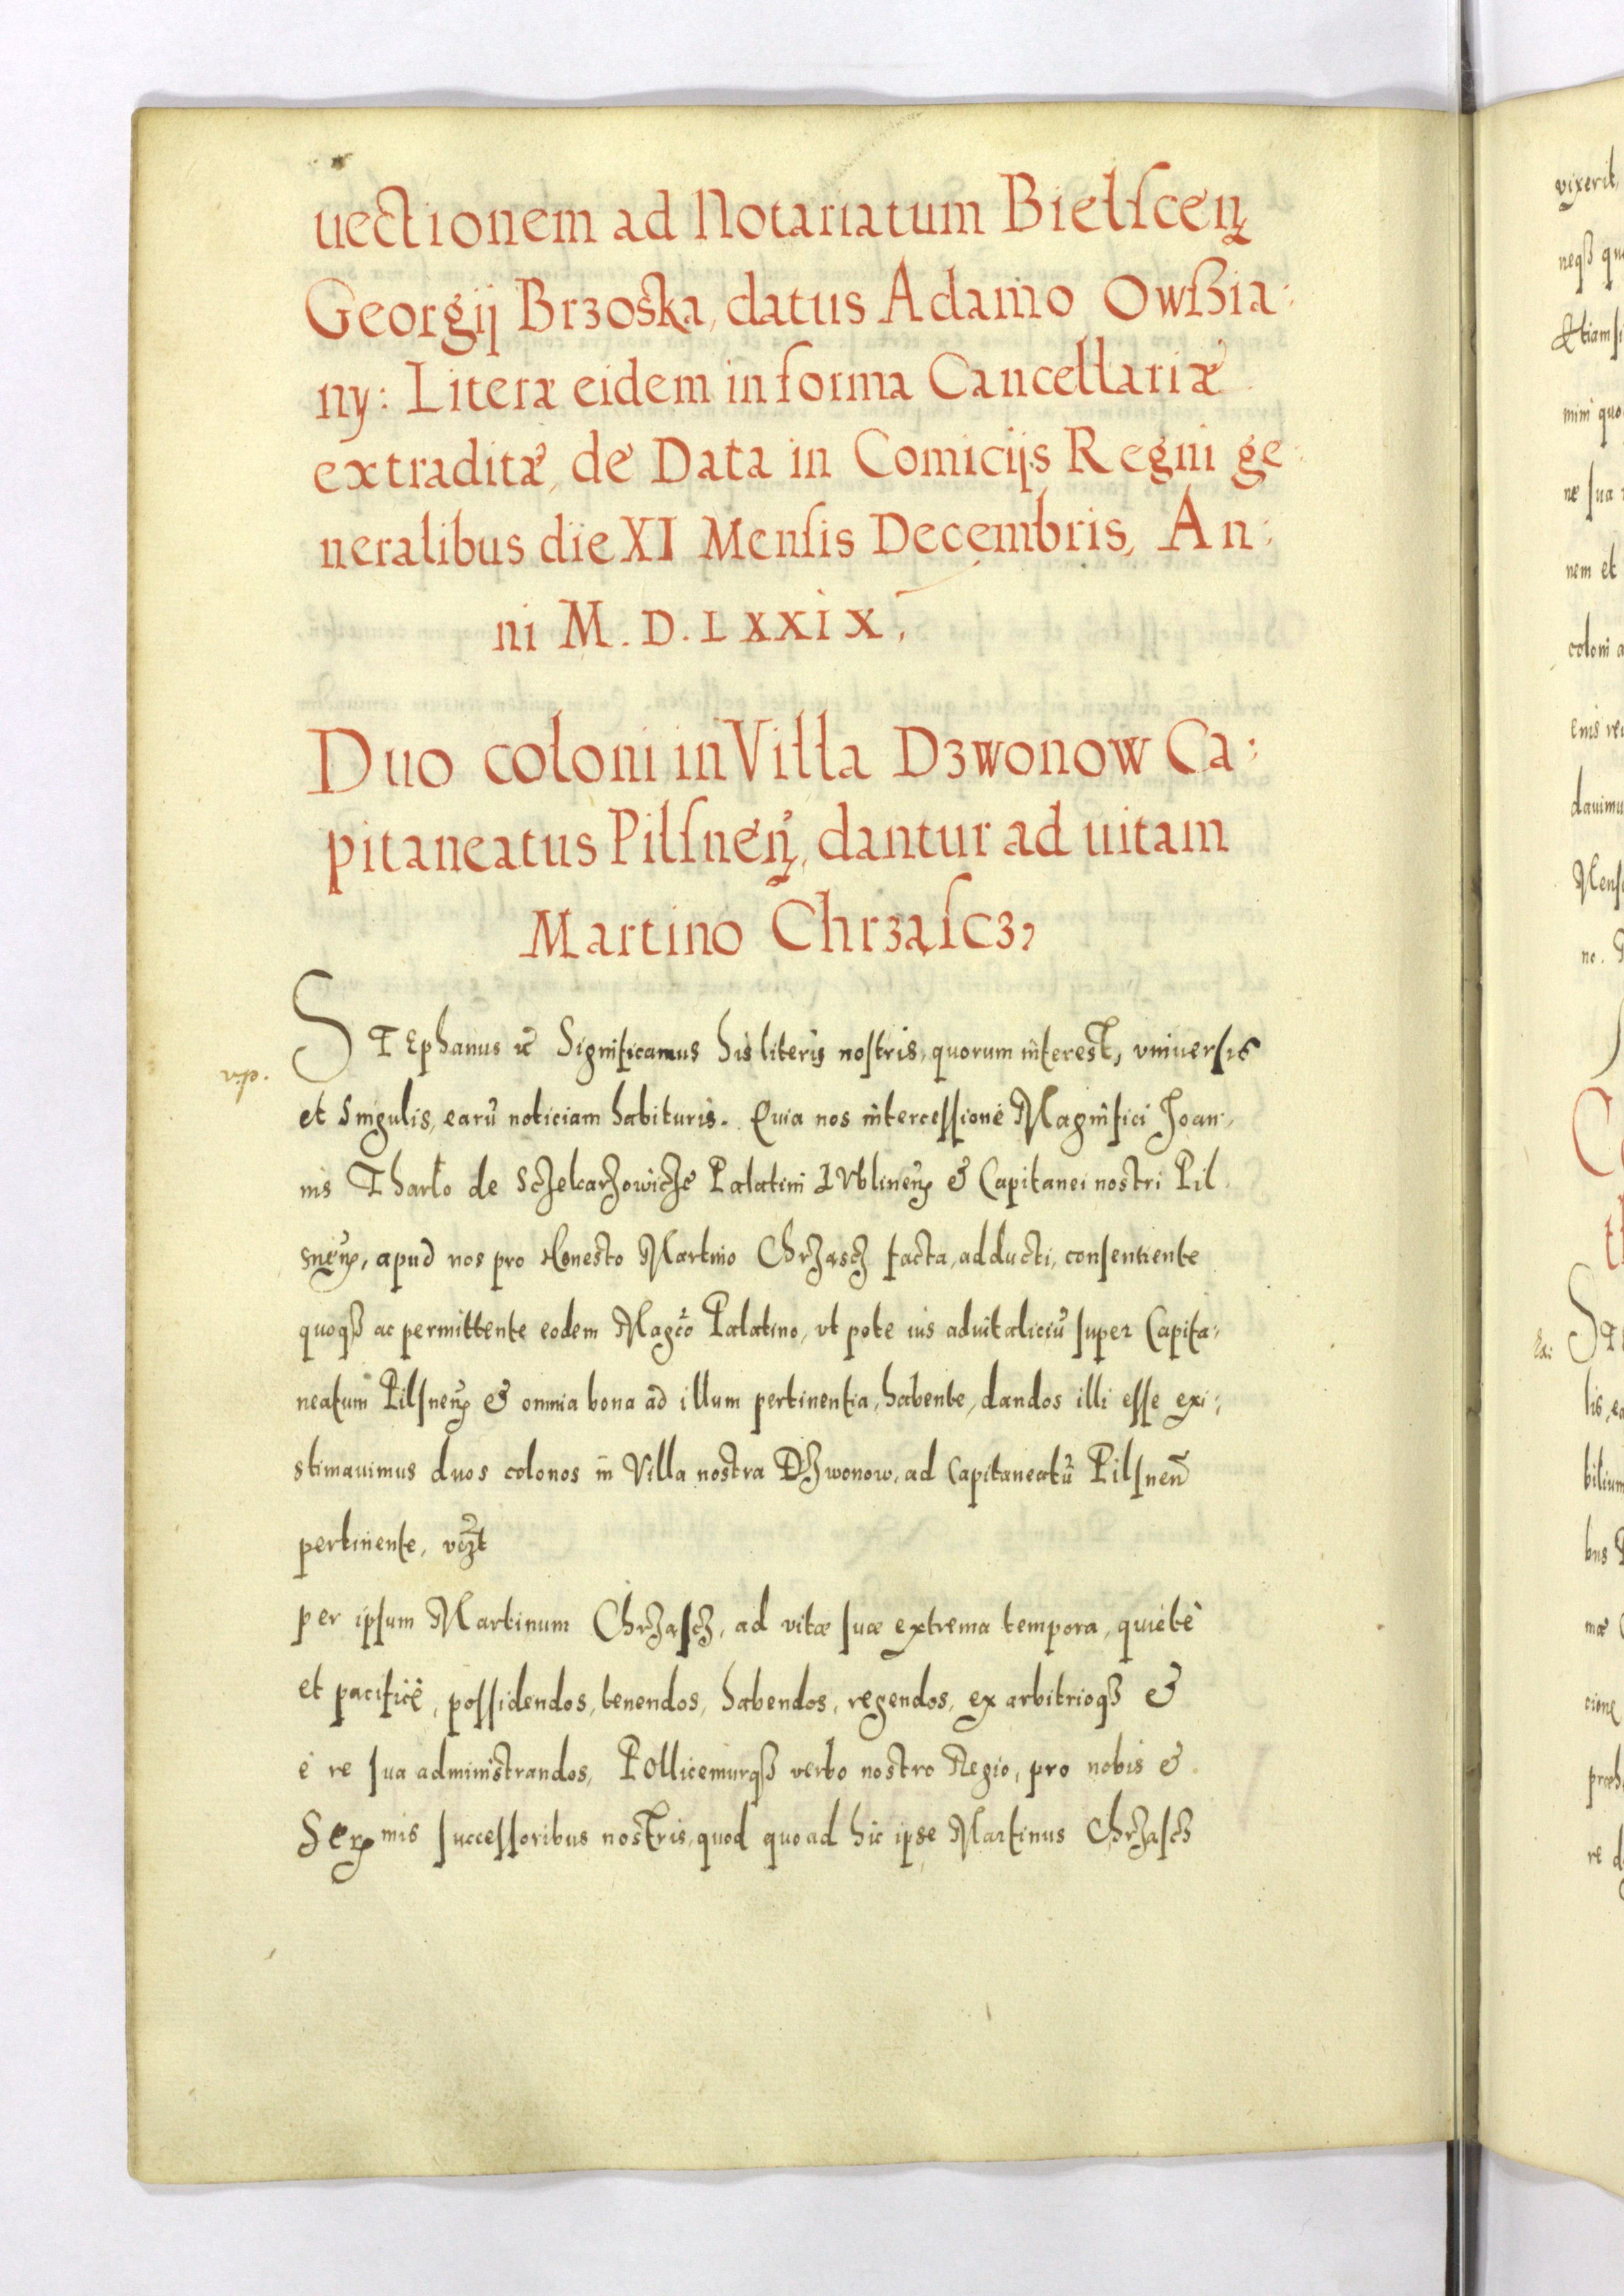 uectionem ad Notariatum Bielscen̄
Georgij Brzoska, datus Adamo Owßia:
ny: Literæ eidem in forma Cancellariæ
extraditæ, de Data in Comicijs Regni ge:
neralibus die XI Mensis Decembris, An:
ni M. D. LXXIX,
Duo coloni in Villa Dzwonow Ca:
pitaneatus Pilsnen̄, dantur ad uitam
Martino Chrząscz,
STEphanus &c Significamus his literis nostris, quorum interest, vniuersis
et singulis, earū noticiam habituris. Quia nos intercessione Magnifici Joan,
nis Tharlo de Sczekarzowicze Palatini LVblinen̄ & Capitanei nostri Pil
snen̄, apud nos pro Honesto Martino Chrząscz facta, adducti, consentiente
quoqß ac permittente eodem Magco Palatino, vt pote ius aduitaliciū super Capita:
neatum Pilsnen̄ & omnia bona ad illum pertinentia, habente, dandos illi esse exi:
stimauimus duos colonos in Villa nostra Dzwonow, ad Capitaneatū Pilsnen̄
pertinente, vczt
per ipsum Martinum Chrząscz, ad vitæ suæ extrema tempora, quietè
et pacificè, possidendos, tenendos, habendos, regendos, ex arbitrioqß &
è re sua administrandos, POllicemurqß verbo nostro Regio, pro nobis &
Seren̄mis successoribus nostris, quod quoad hic ipse Martinus Chrząscz